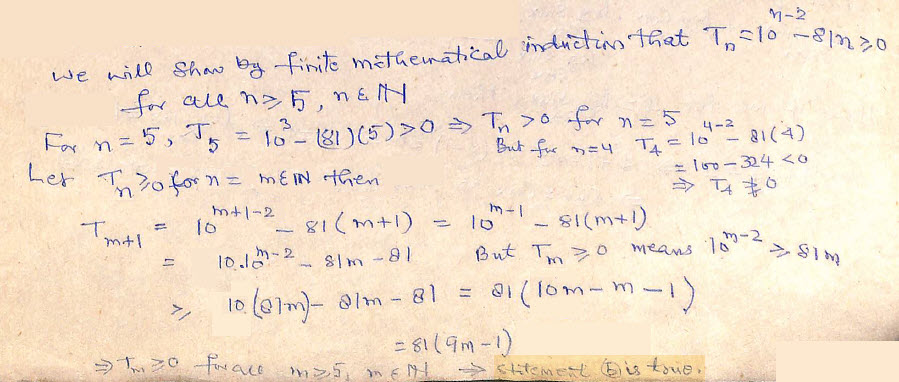 We will show by finite mathematical induction that Tₙ = 10ⁿ⁻² – 81n ≥ 0
for all n ≥ 5, n ∈ ℕ
For n = 5, T₅ = 10³ – (81)(5) > 0 ⇒ Tₙ > 0 for n = 5
But for n = 4 T₄ = 10⁴⁻² – 81(4)
= 100 – 324 < 0
⇒ T₄ ≱ 0
Let Tₙ ≥ 0 for n = m ∈ ℕ then
Tₘ₊₁ = 10ᵐ⁺¹⁻² – 81(m+1) = 10ᵐ⁻¹ – 81(m+1)
= 10.10ᵐ⁻² – 81m – 81 But Tₘ ≥ 0 means 10ᵐ⁻² ≥ 81m
≥ 10.(81m) – 81m – 81 = 81(10m – m – 1)
= 81(9m – 1)
⇒ Tₘ ≥ 0 for all m ≥ 5, m ∈ ℕ ⇒ statement ⓑ is true.